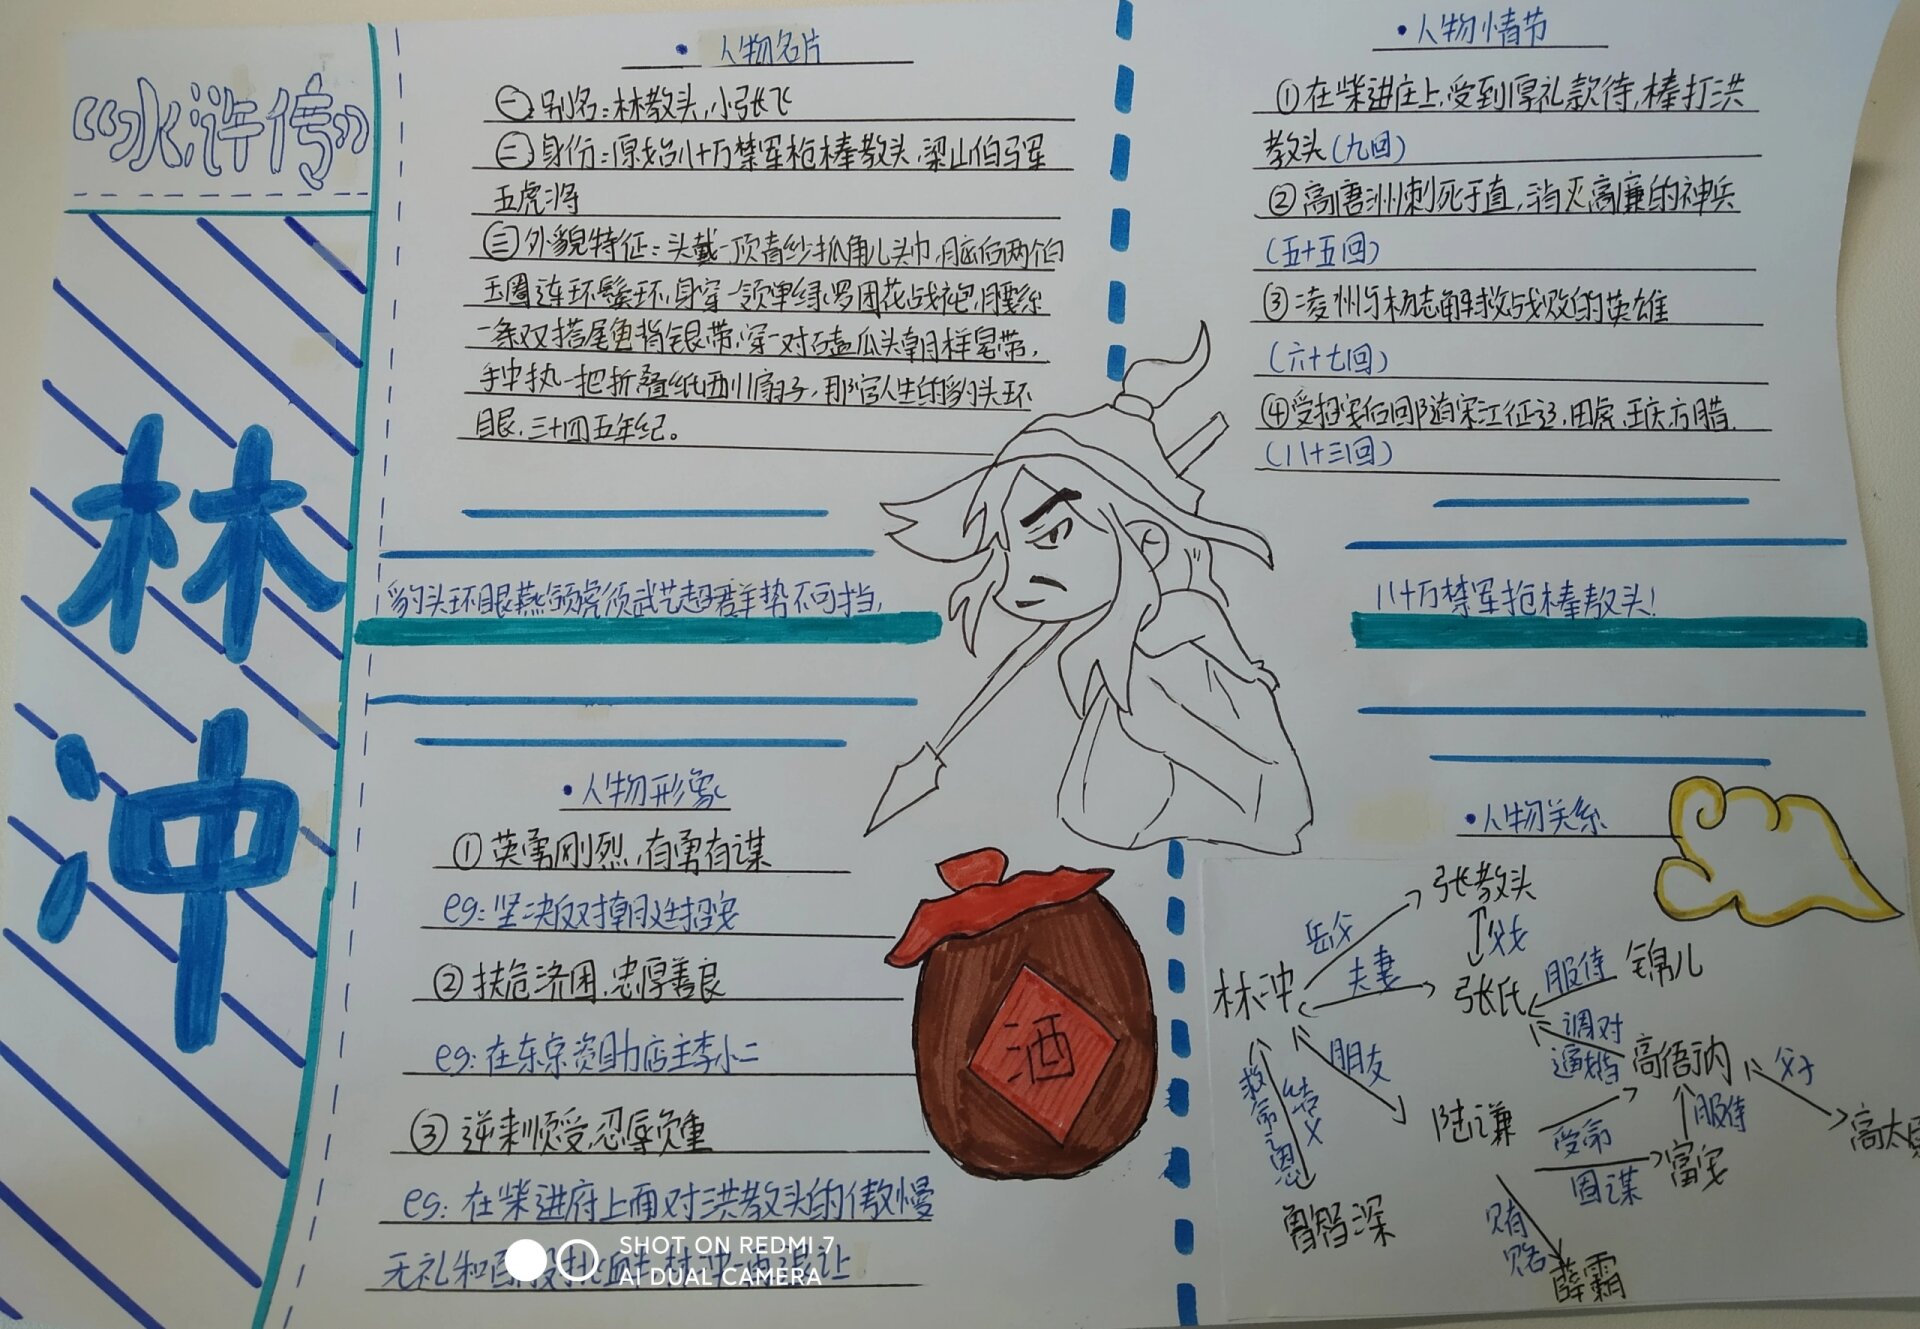 《水浒传》
林冲
·人物名片
㊀别名：林教头，小张飞
㊁身份：原始八十万禁军枪棒教头，梁山伯马军
五虎将
㊂外貌特征：头戴一顶青纱抓角儿头巾，脑后两个白
玉圈连环鬓环，身穿一领单绿罗团花战袍，腰系
一条双搭尾龟背银带，穿一对磕瓜头朝样皂带，
手中执一把折叠纸西川扇子，那官人生的豹头环
眼，三十四五年纪。
·人物情节
①在柴进庄上，受到厚礼款待，棒打洪
教头（九回）
②高唐州刺死于直，消灭高廉的神兵
（五十五回）
③凌州与杨志解救战败的英雄
（六十七回）
④受招安后回随宋江征辽，田虎，王庆，方腊.
（八十三回）
豹头环眼燕颔虎须武艺超群势不可挡，
八十万禁军抢棒教头！
·人物形象
①英勇刚烈，有勇有谋
eg：坚决反对朝廷招安
②扶危济困，忠厚善良
eg：在东京资助店主李小二
③逆来顺受，忍辱负重
eg：在柴进府上面对洪教头的傲慢
无礼和
让
酒
·人物关系
张教头
岳父
父女
林冲
夫妻
张氏
服侍
锦儿
调对
逼婚
高俅
父子
高太尉
朋友
陆谦
受命
服侍
富安
固谋
救命之恩
结义
鲁智深
贿赂
薛霸
SHOT ON REDMI 7
AI DUAL CAMERA